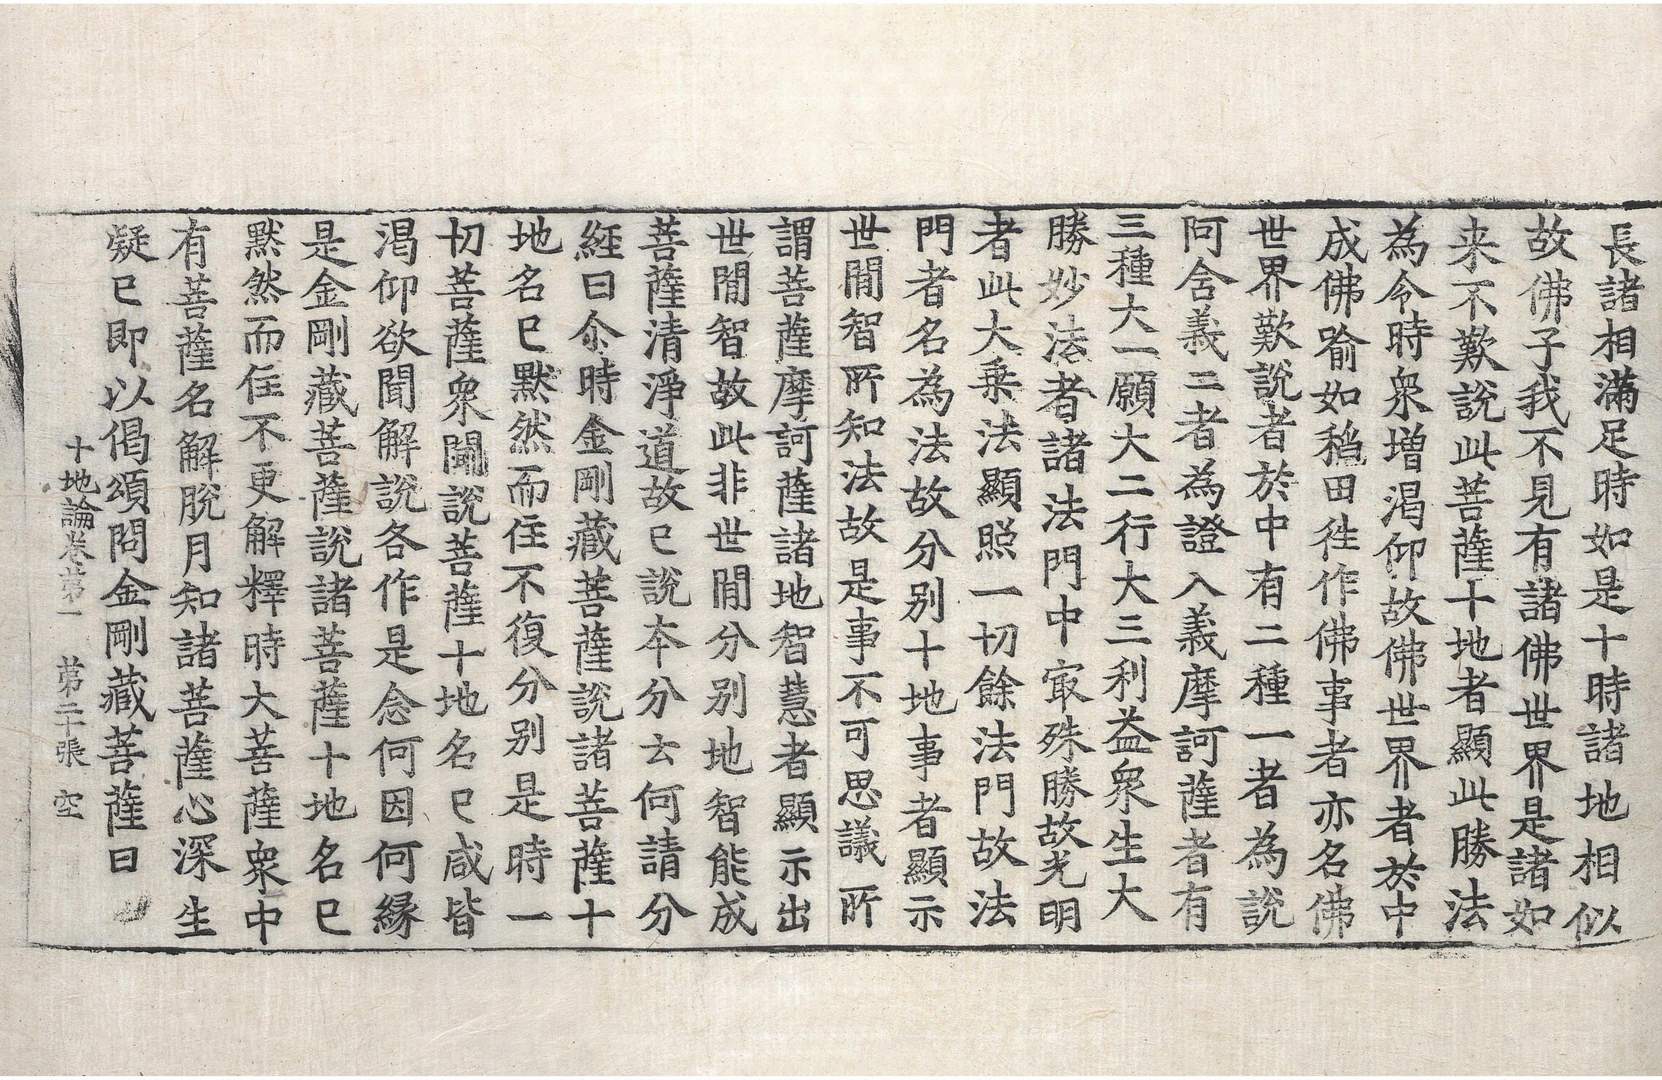 長諸相滿足時如是十時諸地相似
故佛子我不見有諸佛世界是諸如
来不歎說此菩薩十地者顯此勝法
為令時衆增渴仰故佛世界者於中
成佛喻如稻田徃作佛事者亦名佛
世界歎說者於中有二種一者為說
阿含義二者為證入義摩訶薩者有
三種大一願大二行大三利益衆生大
勝妙法者諸法門中㝡殊勝故光明
者此大乗法顯照一切餘法門故法
門者名為法故分別十地事者顯示
世閒智所知法故是事不可思議所
謂菩薩摩訶薩諸地智慧者顯示出
世閒智故此非世閒分別地智能成
菩薩清淨道故已說本分云何請分
經曰尒時金剛藏菩薩說諸菩薩十
地名已默然而住不復分別是時一
切菩薩衆聞說菩薩十地名已咸皆
渴仰欲聞解說各作是念何因何縁
是金剛藏菩薩說諸菩薩十地名已
默然而住不更解釋時大菩薩衆中
有菩薩名解脫月知諸菩薩心深生
疑已即以偈頌問金剛藏菩薩曰
十地論卷第一　第二十張　空